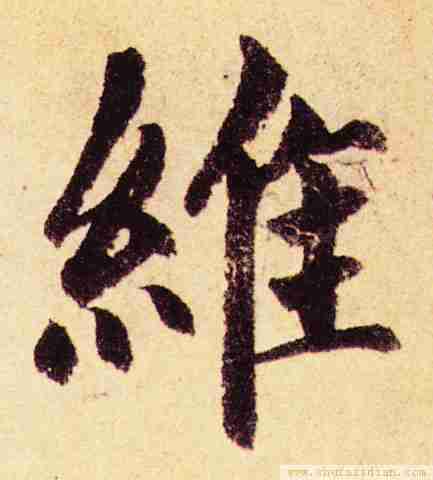 維
www.shufazidian.com